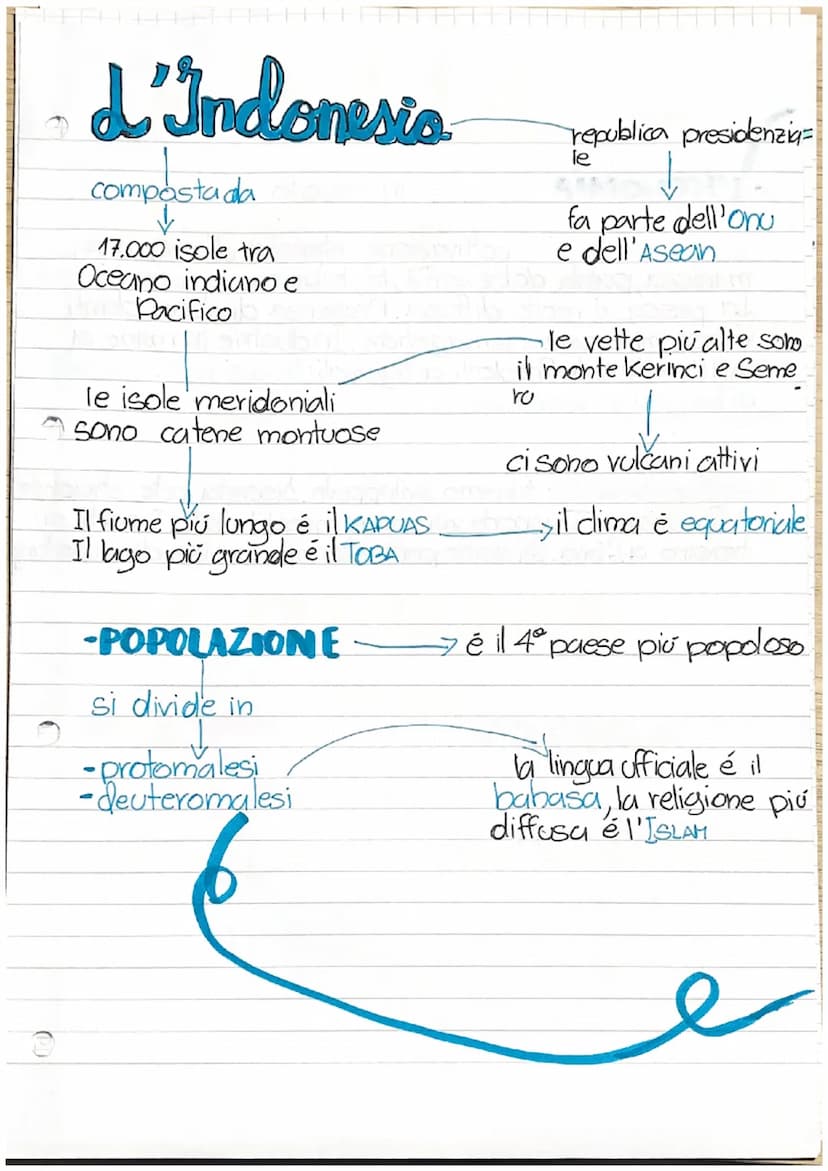 L'Indonesia
republica presidenzia=
le
composta da
fa parte dell'ONU
e dell'ASEAN
17.000 isole tra
Oceano indiano e
Pacifico
le vette piú alte sono
il monte Kerinci e Seme
ro
le isole meridoniali
sono catene montuose
ci sono vulcani attivi
Il fiume piú lungo é il KAPUAS
il clima é equatoriale
Il lago piú grande é il TOBA
-POPOLAZIONE
é il 4° paese piú popoloso
si divide in
-protomalesi
-deuteromalesi
la lingua ufficiale é il
bahasa, la religione piú
diffusa é l'ISLAM